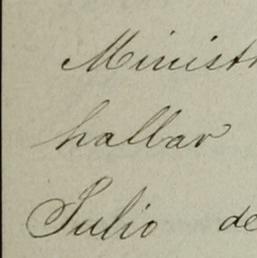 Minist
hallar
Julio de